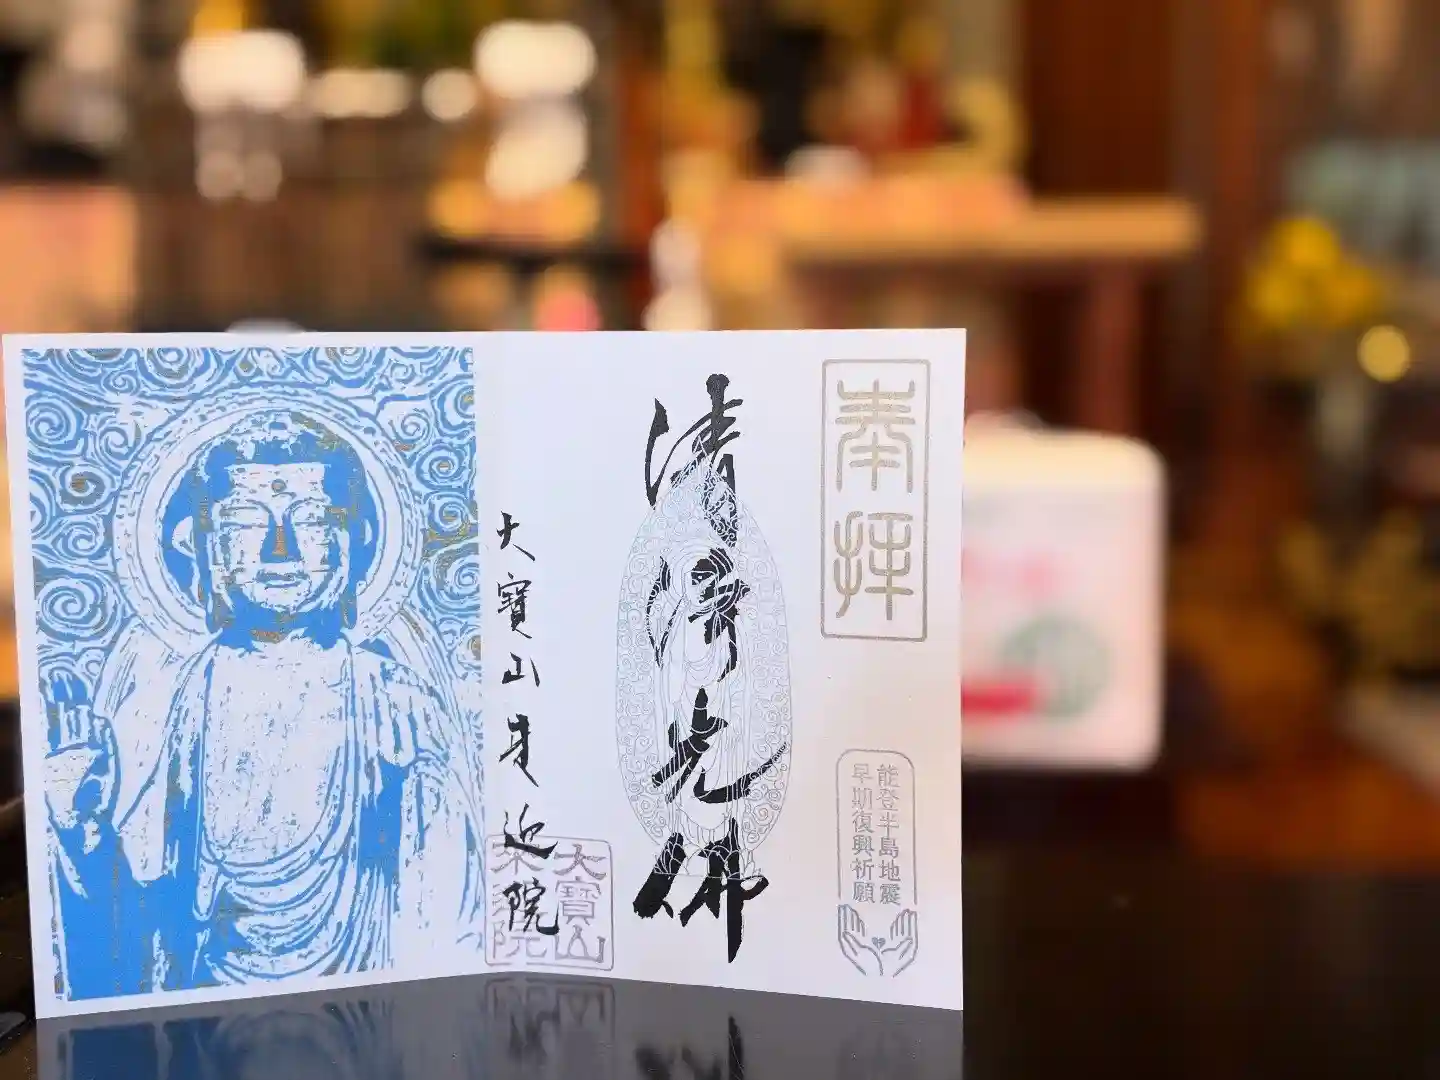 奉拝
能登半島地震
早期復興祈願
清浄光佛
大寶山来迎院
大寶山
来迎院